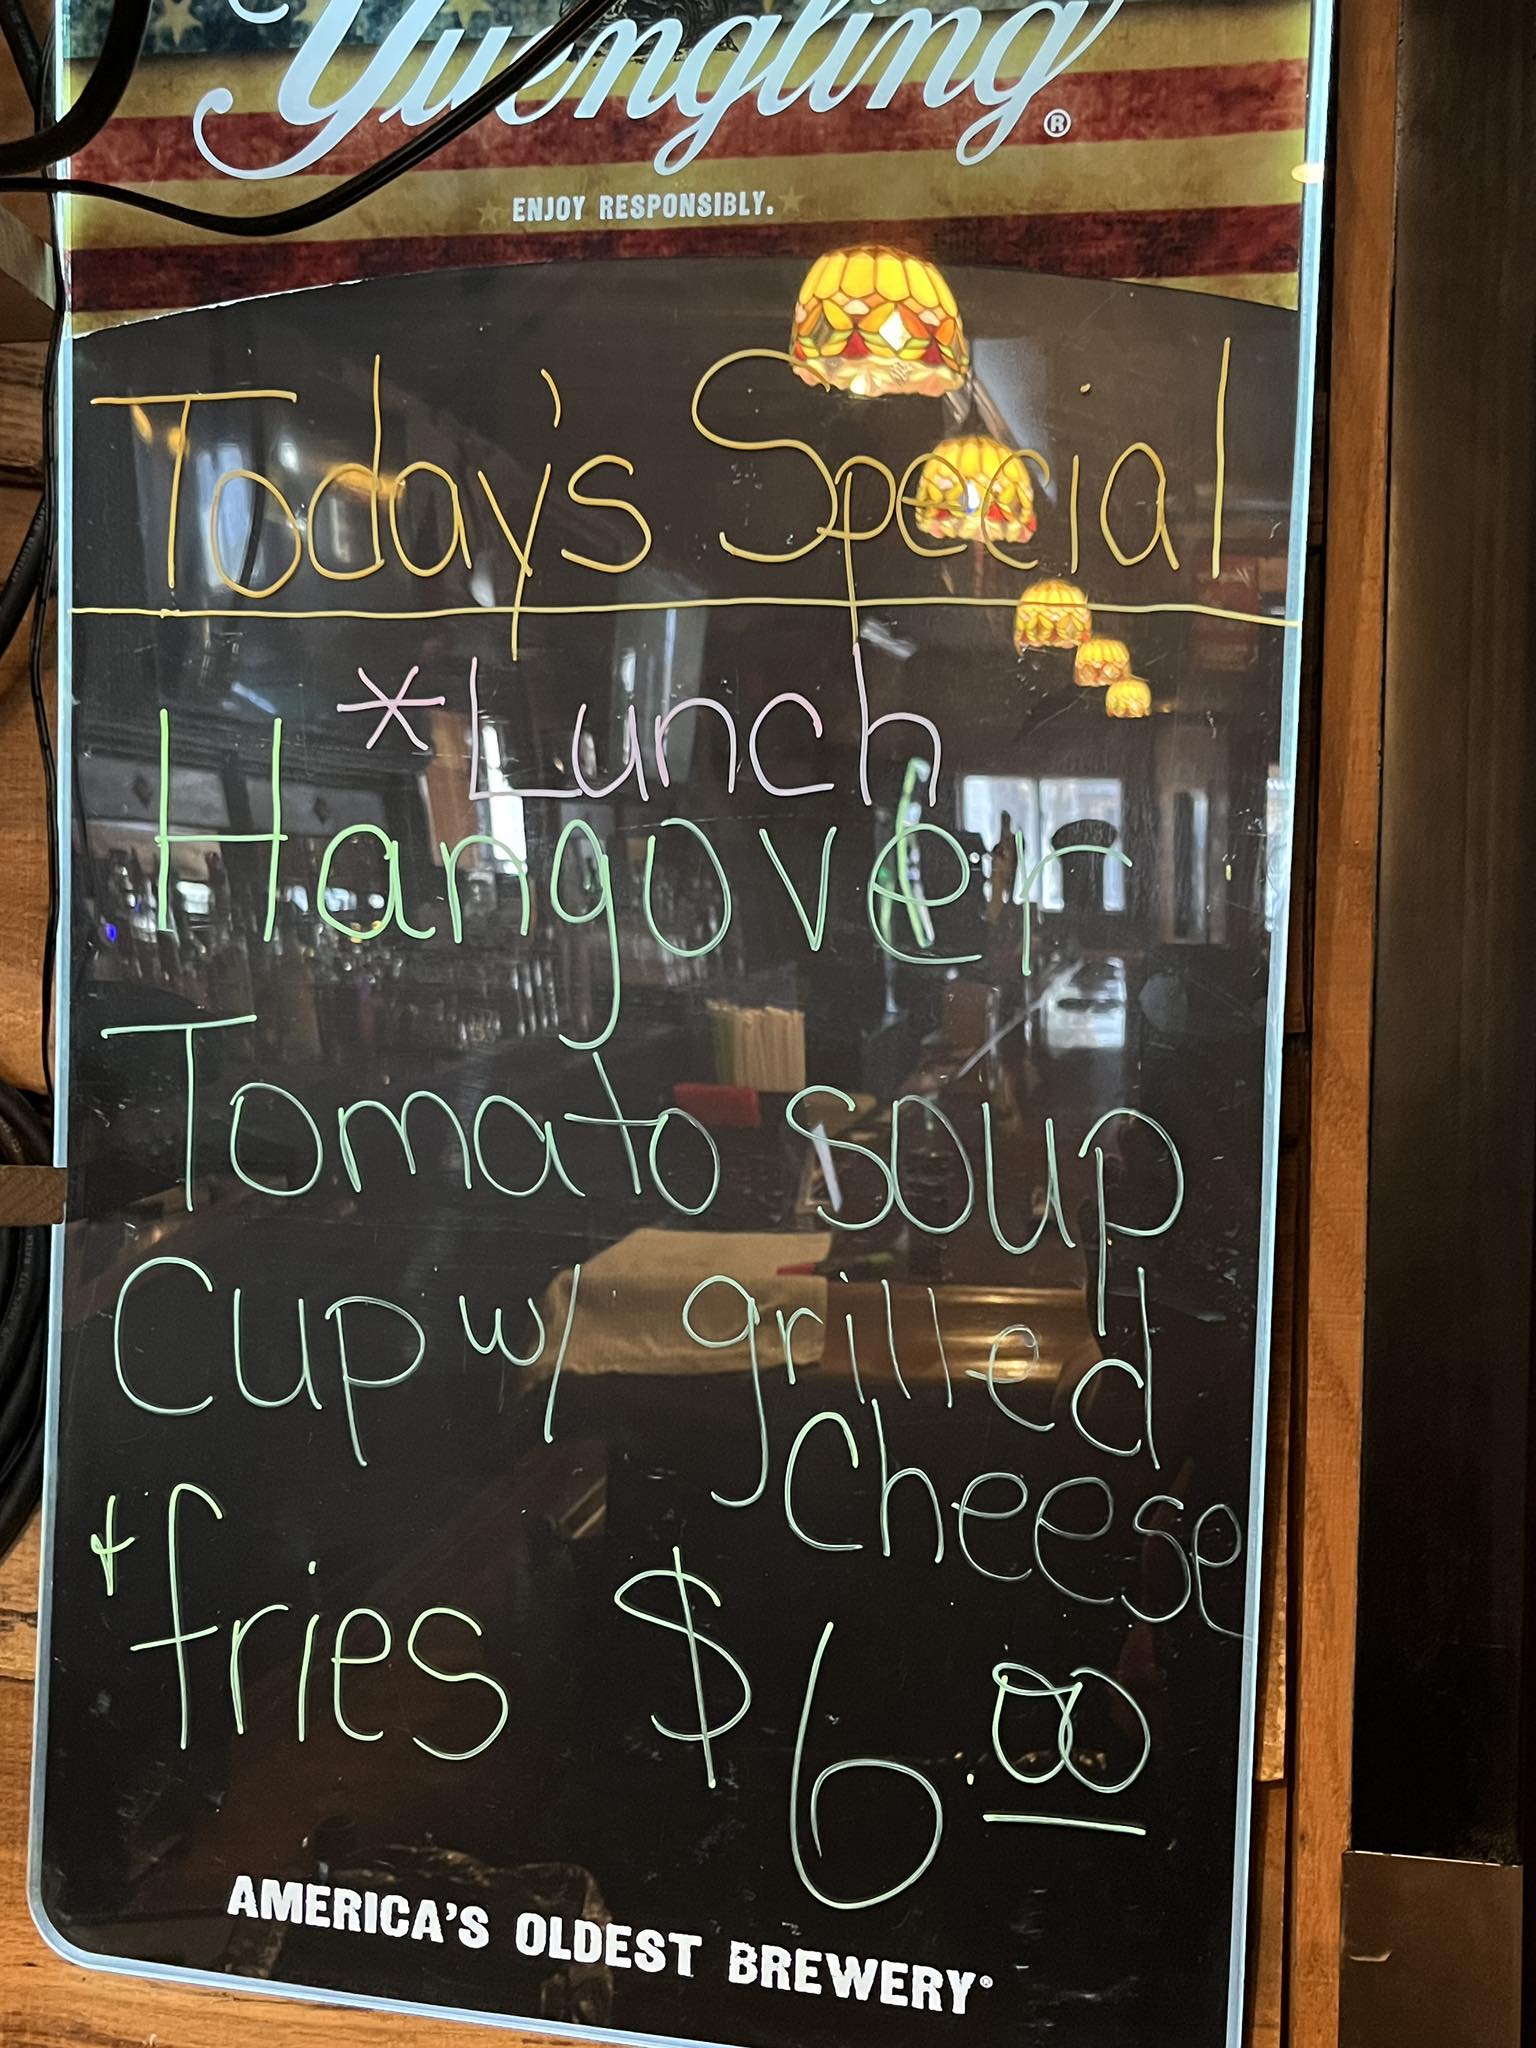 Yuengling®
ENJOY RESPONSIBLY.
Today's Special
*Lunch
Hangover
Tomato soup
Cup w/ grilled
Cheese
+ fries $6.00
AMERICA'S OLDEST BREWERY®